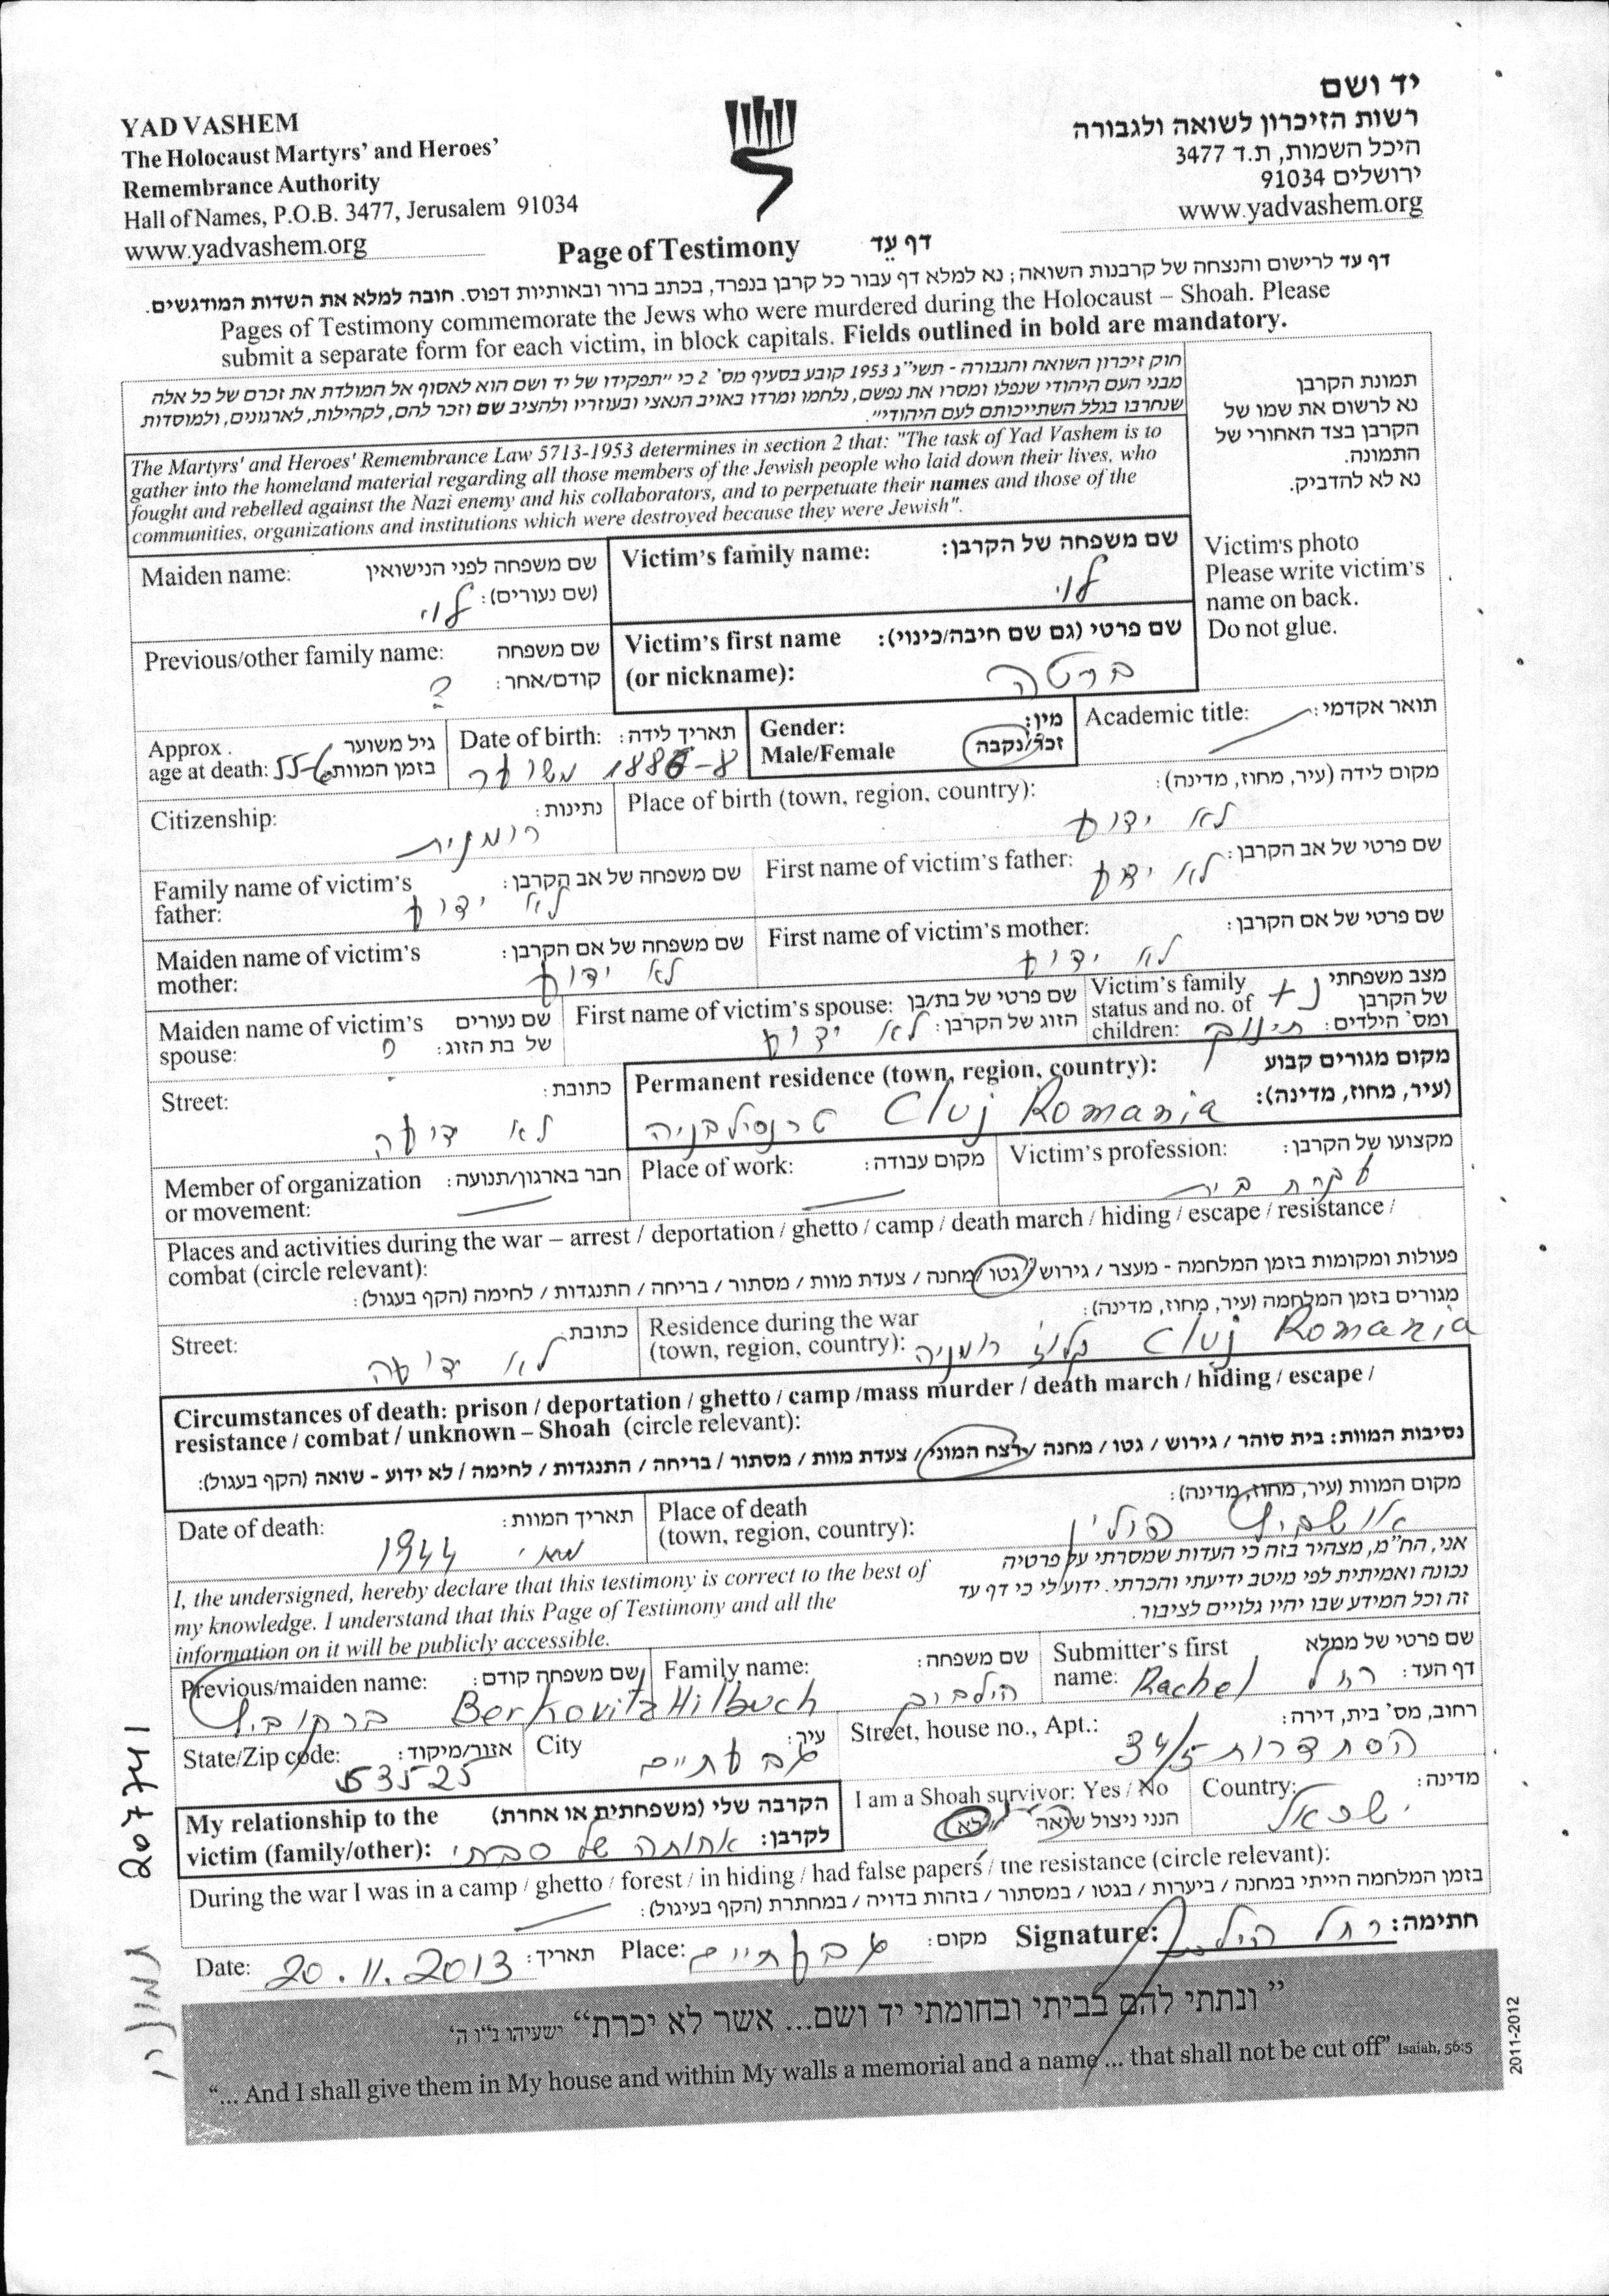 יד ושם
רשות הזיכרון לשואה ולגבורה
היכל השמות, ת.ד 3477
ירושלים 91034
www.yadvashem.org
YAD VASHEM
The Holocaust Martyrs' and Heroes'
Remembrance Authority
Hall of Names, P.O.B. 3477, Jerusalem 91034
www.yadvashem.org
Page of Testimony דף עֵד
דף עד לרישום והנצחה של קרבנות השואה; נא למלא דף עבור כל קרבן בנפרד, בכתב ברור ובאותיות דפוס. חובה למלא את השדות המודגשים.
Pages of Testimony commemorate the Jews who were murdered during the Holocaust – Shoah. Please
submit a separate form for each victim, in block capitals. Fields outlined in bold are mandatory.
חוק זיכרון השואה והגבורה - תשי"ג 1953 קובע בסעיף מס' 2 כי "תפקידו של יד ושם הוא לאסוף אל המולדת את זכרם של כל אלה
מבני העם היהודי שנפלו ומסרו את נפשם, נלחמו ומרדו באויב הנאצי ובעוזריו ולהציב שם וזכר להם, לקהילות, לארגונים, ולמוסדות
שנחרבו בגלל השתייכותם לעם היהודי".
The Martyrs' and Heroes' Remembrance Law 5713-1953 determines in section 2 that: "The task of Yad Vashem is to
gather into the homeland material regarding all those members of the Jewish people who laid down their lives, who
fought and rebelled against the Nazi enemy and his collaborators, and to perpetuate their names and those of the
communities, organizations and institutions which were destroyed because they were Jewish".
תמונת הקרבן
נא לרשום את שמו של
הקרבן בצד האחורי של
התמונה.
נא לא להדביק.
Victim's photo
Please write victim's
name on back.
Do not glue.
Victim's family name: שם משפחה של הקרבן:
לוי
Maiden name: שם משפחה לפני הנישואין
(שם נעורים): לוי
Victim's first name שם פרטי (גם שם חיבה/כינוי):
(or nickname): ברטה
Previous/other family name: שם משפחה
קודם/אחר: ?
Academic title: תואר אקדמי:
Gender: מין:
Male/Female זכר/נקבה
Date of birth: תאריך לידה:
1886-8 משוער
Approx. גיל משוער
age at death: בזמן המוות: 55-6
Place of birth (town, region, country): מקום לידה (עיר, מחוז, מדינה):
לא ידוע
Citizenship: נתינות:
רומנית
First name of victim's father: שם פרטי של אב הקרבן:
לא ידוע
Family name of victim's שם משפחה של אב הקרבן:
father: לא ידוע
First name of victim's mother: שם פרטי של אם הקרבן:
לא ידוע
Maiden name of victim's שם משפחה של אם הקרבן:
mother: לא ידוע
Victim's family מצב משפחתי
status and no. of של הקרבן
children: ומס' הילדים: נ +
תינוק
First name of victim's spouse: שם פרטי של בת/בן
הזוג של הקרבן: לא ידוע
Maiden name of victim's שם נעורים
spouse: של בת הזוג: ?
Permanent residence (town, region, country): מקום מגורים קבוע
(עיר, מחוז, מדינה): Cluj Romania טרנסילבניה
Street: כתובת:
לא ידועה
Victim's profession: מקצועו של הקרבן:
עקרת בית
Place of work: מקום עבודה:
Member of organization חבר בארגון/תנועה:
or movement:
Places and activities during the war – arrest / deportation / ghetto / camp / death march / hiding / escape / resistance /
combat (circle relevant):
פעולות ומקומות בזמן המלחמה - מעצר / גירוש / גטו / מחנה / צעדת מוות / מסתור / בריחה / התנגדות / לחימה (הקף בעגול):
Residence during the war מגורים בזמן המלחמה (עיר, מחוז, מדינה):
(town, region, country): Cluj Romania קלוז' רומניה
Street: כתובת:
לא ידועה
Circumstances of death: prison / deportation / ghetto / camp /mass murder / death march / hiding / escape /
resistance / combat / unknown – Shoah (circle relevant):
נסיבות המוות: בית סוהר / גירוש / גטו / מחנה / רצח המוני / צעדת מוות / מסתור / בריחה / התנגדות / לחימה / לא ידוע - שואה (הקף בעגול):
Place of death מקום המוות (עיר, מחוז, מדינה):
(town, region, country): אושביץ פולין
Date of death: תאריך המוות:
מאי 1944
אני, הח"מ, מצהיר בזה כי העדות שמסרתי על פרטיה
נכונה ואמיתית לפי מיטב ידיעתי והכרתי. ידוע לי כי דף עד
זה וכל המידע שבו יהיו גלויים לציבור.
I, the undersigned, hereby declare that this testimony is correct to the best of
my knowledge. I understand that this Page of Testimony and all the
information on it will be publicly accessible.
Submitter's first שם פרטי של ממלא
name: דף העד: Rachel רחל
Family name: שם משפחה:
Hilbuch הילבוך
Previous/maiden name: שם משפחה קודם:
Berkovitz ברקוביץ
Street, house no., Apt.: רחוב, מס' בית, דירה:
הסתדרות 34/5
City עיר:
גבעתיים
State/Zip code: אזור/מיקוד:
53525
Country: מדינה:
ישראל
I am a Shoah survivor: Yes / No
הנני ניצול שואה: כן / לא
My relationship to the הקרבה שלי (משפחתית או אחרת)
victim (family/other): לקרבן: אחותה של סבתי
During the war I was in a camp / ghetto / forest / in hiding / had false papers / the resistance (circle relevant):
בזמן המלחמה הייתי במחנה / ביערות / בגטו / במסתור / בזהות בדויה / במחתרת (הקף בעיגול):
Date: 20.11.2013 תאריך: Place: גבעתיים מקום: Signature: רחל הילבוך חתימה:
"ונתתי להם בביתי ובחומתי יד ושם... אשר לא יכרת" ישעיהו נ"ו ה'
"... And I shall give them in My house and within My walls a memorial and a name ... that shall not be cut off" Isaiah, 56:5
2011-2012
207741